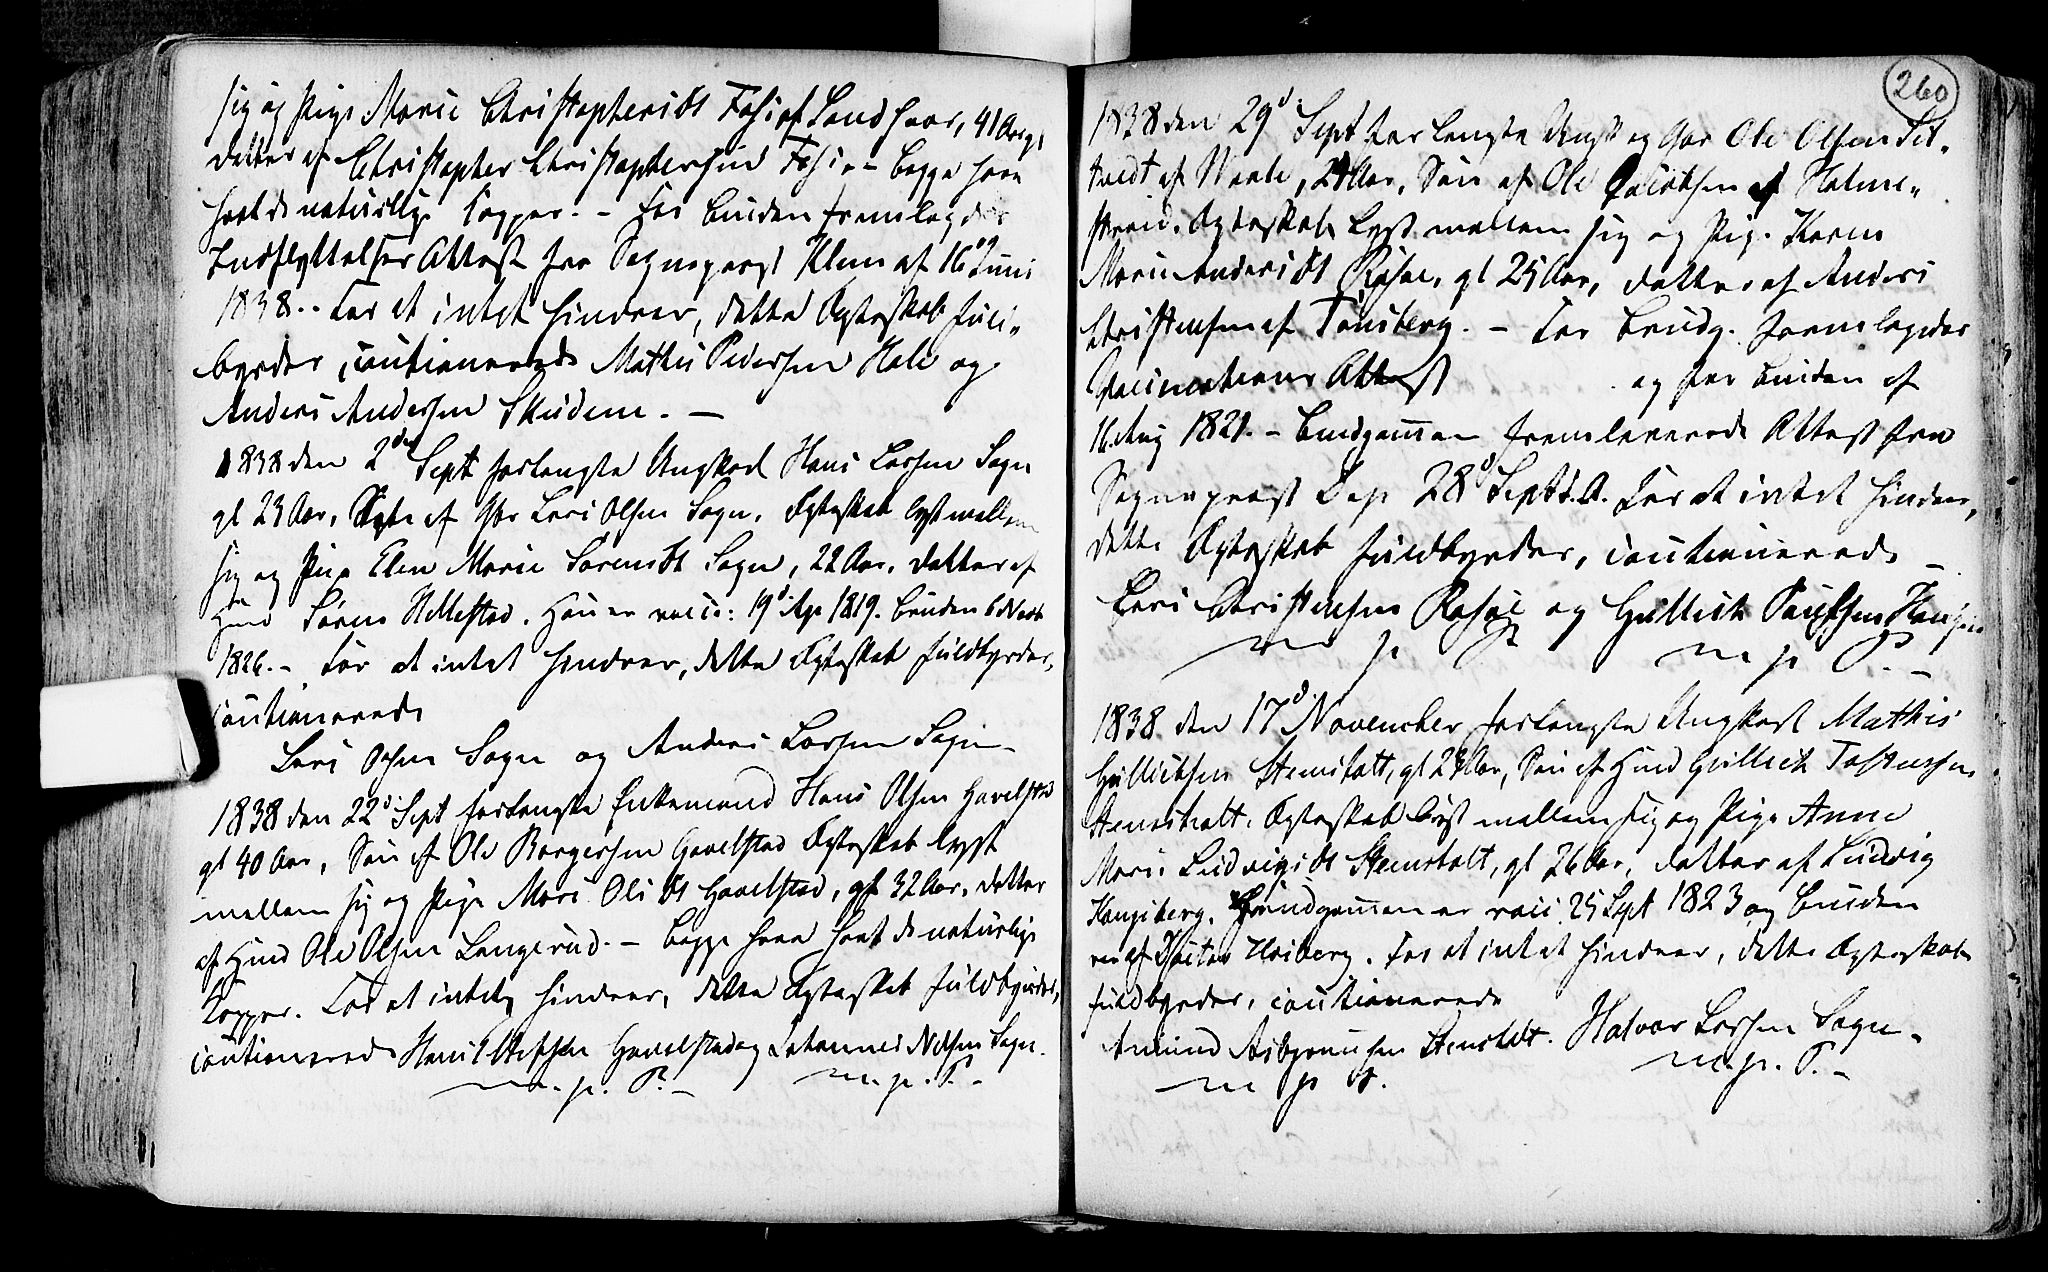 sig og Pige Marie Christophersdt Fossi af Landhaar, 41 Aar gl
datter af Christopher Christophersen Fossi. - begge have
havt de naturlige Kopper. - For bruden fremlagdes
Indflyttelses Attest fra Sogneprest Klem af 16d Juni
1838. - For at intet hindrer, dette Ægteskab fuld-
byrdes, cautionerede Mathis Pedersen Hale og
Anders Andersen Skudem. -
1838 den 2den Sept forlangte Ungkarl Hans Larsen Sogn
gl 23 Aar, Søn af Lars Olsen Sogn, Ægteskab lyst mellem
sig og Pige Elen Marie Sørensdt Sogn, 22 Aar, datter af
Hmd Søren Hillestad. Han er vacc: 19d Apr 1819. bruden 6 Novbr
1826. - For at intet hindrer, dette Ægteskab fuldbyrdes,
cautionerede
Lars Olsen Sogn og Anders Larsen Sogn -
1838 den 22d Sept forlangte Enkemand Hans Olsen Gavelstad
gl 40 Aar, Søn af Ole Borgersen Gavelstad Ægteskab lyst
mellem sig og Pige Mari Olsdt Gavelstad, gl 32 Aar, datter
af Hmd Ole Olsen Langerud. - begge have havt de naturlige
Kopper. For at intet hindrer, dette Ægteskab fuldbyrdes,
cautionerede Hans Gavelstad og Johannes Nilsen Sogn.
m. p. P. - m. p. P. -
260
1838 den 29d Sept forlangte Ole Olsen
af Vaale, Aar, Søn af Ole Jacobsen af Holme-
strand, Ægteskab lyst mellem sig og Pige Karen
Marie Andersdt Rosae, gl 25 Aar, datter af Anders
Christensen af Tønsberg. - For brudg. fremlagdes
Vaccinations Attest og for bruden af
16 Aug 1821. - brudgommen fremleverede Attest fra
Sogneprest 28d Sept d.A. For at intet hindrer,
dette Ægteskab fuldbyrdes, cautionerede -
Lars Christensen Rosae og Gullich Paulsen
m p P m p P. -
1838 den 17d November forlangte Ungkarl Mathis
Gullichsen Stenshalt, gl 23 Aar, Søn af Hmd Gullich Tostensen
Stenshalt, Ægteskab lyst mellem sig og Pige Anne
Marie Ludvigsdt Stenshalt, gl 26 Aar, datter af Ludvig
Kongsberg. Brudgommen er vacc 25 Sept 1823 og bruden
vacc af Doctor Heiberg. For at intet hindrer, dette Ægteskab
fuldbyrdes, cautionerede
Amund Asbjørnsen Stenshalt. Halvor Larsen Sogn -
m p P. m. p. P. -